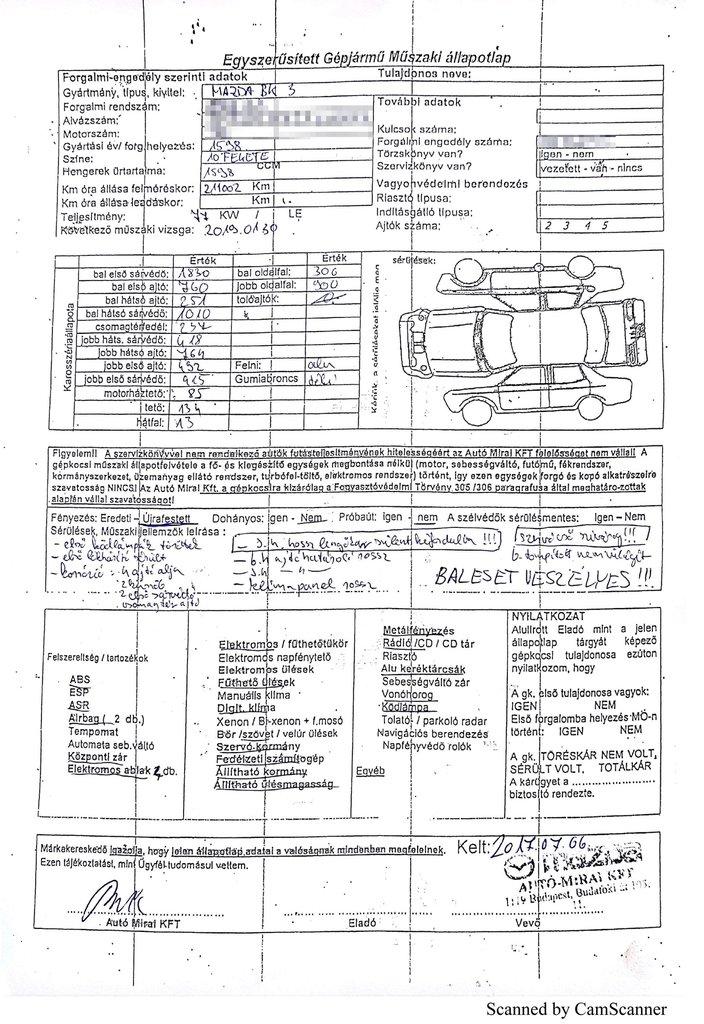 Egyszerűsített Gépjármű Műszaki állapotlap
Forgalmi engedély szerinti adatok
Tulajdonos neve:
Gyártmány, típus, kivitel: MAZDA BK 3
Forgalmi rendszám:
Alvázszám:
Motorszám:
Gyártási év/ forg.helyezés: 1598
Színe: 10 FEKETE
Hengerek űrtartalma: 1598 CCM
Km óra állása felméréskor: 211002 Km
Km óra állása leadáskor: Km
Teljesítmény: 77 KW / LE
Következő műszaki vizsga: 2019.01.30
További adatok
Kulcsok száma:
Forgalmi engedély száma:
Törzskönyv van? igen - nem
Szervizkönyv van? vezetett - van - nincs
Vagyonvédelmi berendezés
Riasztó típusa:
Indításgátló típusa:
Ajtók száma: 2 3 4 5
Karosszériaállapota
Érték
Érték
bal első sárvédő: 1830 bal oldalfal: 306
bal első ajtó: 760 jobb oldalfal: 900
bal hátsó ajtó: 251 tolóajtók:
bal hátsó sárvédő: 1010
csomagtérfedél: 237
jobb háts. sárvédő: 418
jobb hátsó ajtó: 764
jobb első ajtó: 492 Felni: alu
jobb első sárvédő: 915 Gumiabroncs téli
motorháztető: 85
tető: 134
hátfal: 13
sérülések:
Kérjük, a sérüléseket jelölje meg
Figyelem!! A szervizkönyvvel nem rendelkező autók futásteljesítményének hitelességéért az Autó Mirai KFT felelősséget nem vállal! A
gépkocsi műszaki állapotfelvétele a fő- és kiegészítő egységek megbontása nélkül (motor, sebességváltó, futómű, fékrendszer,
kormányszerkezet, üzemanyag ellátó rendszer, turbófeltöltő, elektromos rendszer) történt, így ezen egységek forgó és kopó alkatrészeire
szavatosság NINCS! Az Autó Mirai Kft. a gépkocsira kizárólag a Fogyasztóvédelmi Törvény 305 /306 paragrafusa által meghatározottak
alapján vállal szavatosságot!
Fényezés: Eredeti - Újrafestett Dohányzó: igen - Nem Próbaút: igen - nem A szélvédők sérülésmentes: Igen – Nem
Sérülések, Műszaki jellemzők leírása :
- első ködlámpák töröttek
- első lökhárító sérült
- korrózió: 4 ajtó alja
2 küszöb
2 első sárvédő
csomagtér ajtó
- J.h hossz lengőkar szilent kifordulva !!!
- b.h ajtóhatároló rossz
- j.h —"—
- klímapanel rossz
szervócső szivárog!!!
b. tompított nem világít
BALESET VESZÉLYES!!!
Felszereltség / tartozékok
ABS
ESP
ASR
Airbag ( 2 db.)
Tempomat
Automata seb.váltó
Központi zár
Elektromos ablak 2 db.
Elektromos / fűthetőtükör
Elektromos napfénytető
Elektromos ülések
Fűthető ülések
Manuális klíma
Digit. klíma
Xenon / Bi-xenon + f.mosó
Bőr /szövet / velúr ülések
Szervó kormány
Fedélzeti számítógép
Állítható kormány
Állítható ülésmagasság
Metálfényezés
Rádió /CD / CD tár
Riasztó
Alu keréktárcsák
Sebességváltó zár
Vonóhorog
Ködlámpa
Tolató / parkoló radar
Navigációs berendezés
Napfényvédő rolók
Egyéb
NYILATKOZAT
Alulírott Eladó mint a jelen
állapotlap tárgyát képező
gépkocsi tulajdonosa ezúton
nyilatkozom, hogy
A gk. első tulajdonosa vagyok:
IGEN NEM
Első forgalomba helyezés MO-n
történt: IGEN NEM
A gk. TÖRÉSKÁR NEM VOLT,
SÉRÜLT VOLT, TOTÁLKÁR
A kárügyet a
biztosító rendezte.
Márkakereskedő igazolja, hogy jelen állapotlap adatai a valóságnak mindenben megfelelnek.
Ezen tájékoztatást, mint Ügyfél tudomásul vettem.
Kelt: 2017.07.06.
mazda
AUTÓ-MIRAI KFT
1119 Budapest, Budafoki út 195.
11.
Autó Mirai KFT
Eladó
Vevő
Scanned by CamScanner